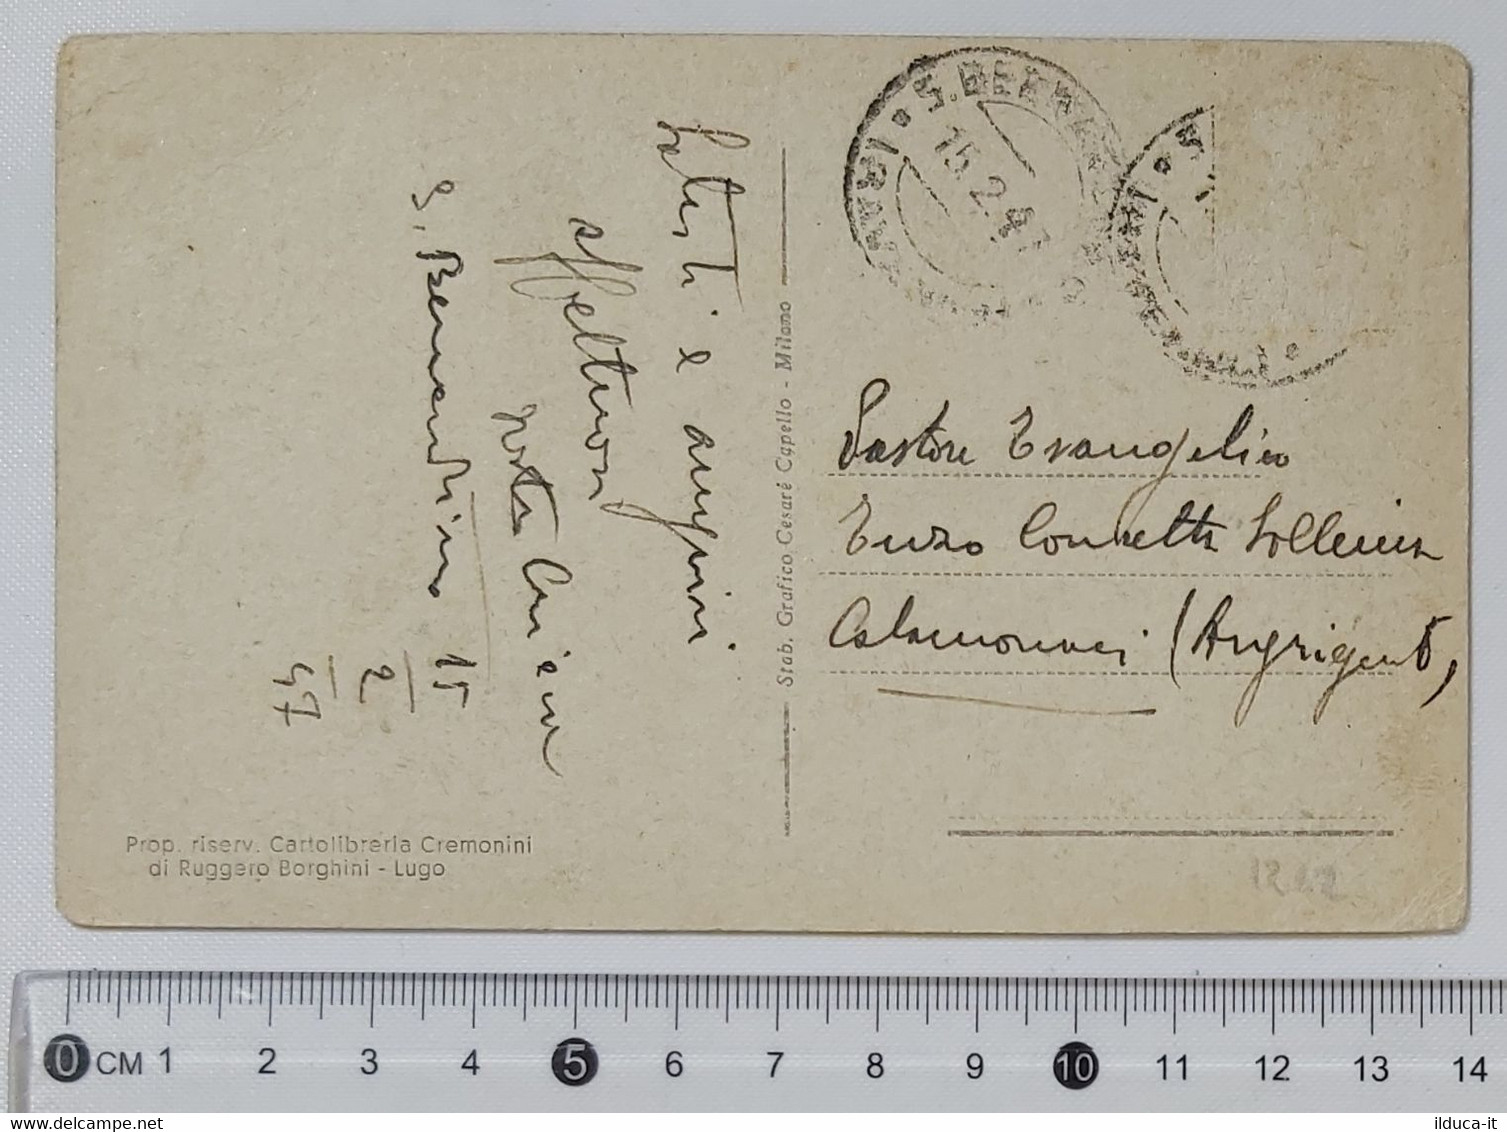 Saluti e auguri
affettuosi
S. Bernardino 15
2
47
Stab. Grafico Cesare Capello - Milano
S. BERNARDINO
15.2.47
Pastore Evangelico
Enzo
Calamonaci (Angrigento)
Prop. riserv. Cartolibreria Cremonini
di Ruggero Borghini - Lugo
0 CM 1 2 3 4 5 6 7 8 9 10 11 12 13 14
delcampe.net
ilduca-it